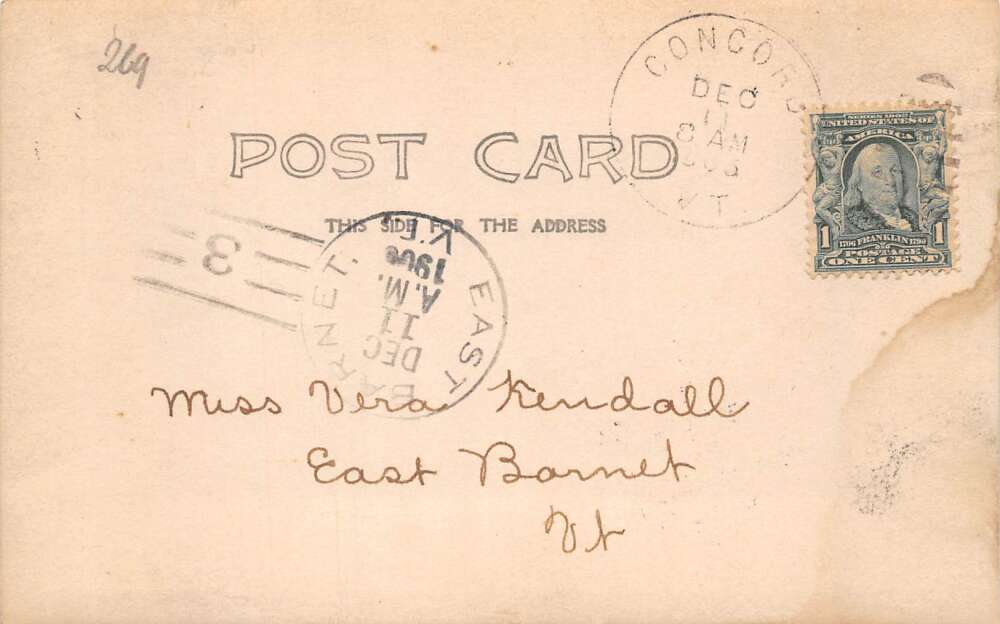 269
CONCORD
DEC
11
8 AM
VT.
POST CARD
THIS SIDE FOR THE ADDRESS
SERIES 1902
UNITED STATES OF
AMERICA
1 1706 FRANKLIN 1790 1
POSTAGE
ONE CENT
EAST BARNET.
DEC
11
A.M.
1906
VT.
3
Miss Vera Kendall
East Barnet
Vt